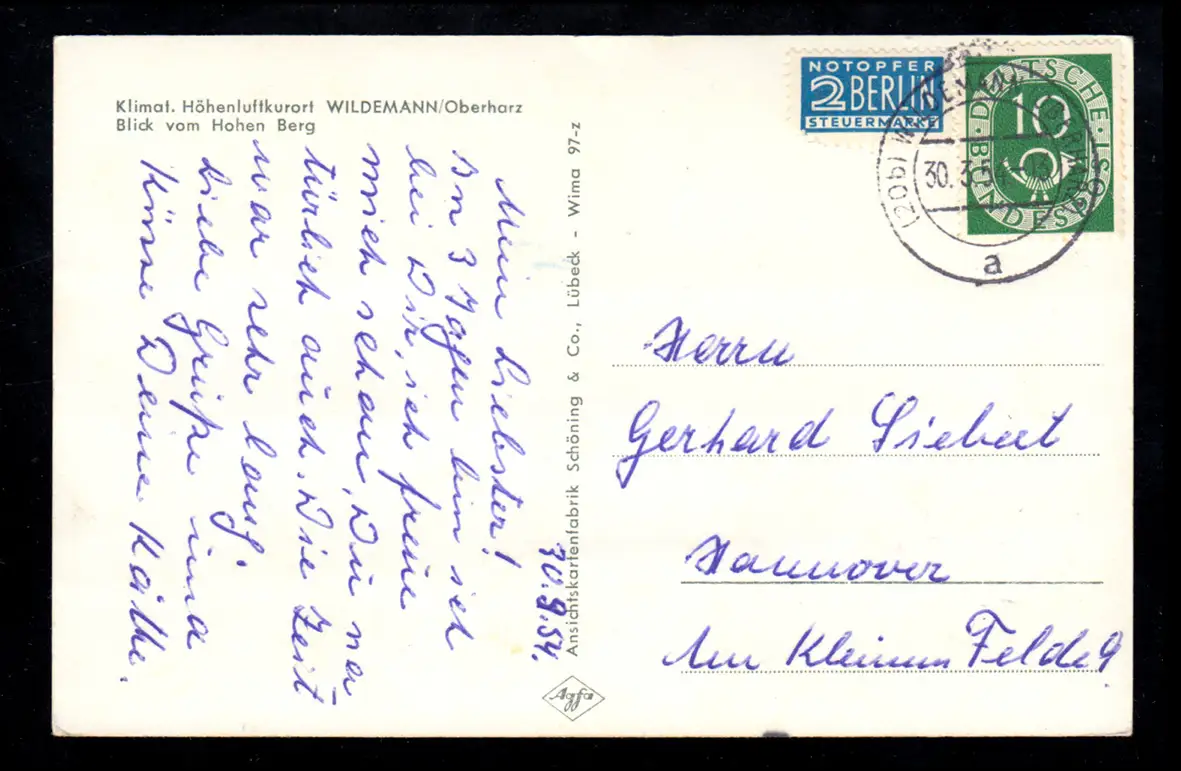 Klimat. Höhenluftkurort WILDEMANN/Oberharz
Blick vom Hohen Berg
NOTOPFER
2 BERLIN
STEUERMARKE
DEUTSCHE BUNDESPOST
10
(20b) WILDEMANN
30.3.54
a
30.3.54.
Mein Liebster!
In 3 Tagen bin ich
bei Dir, ich freue
mich schon, Du na-
türlich auch. Die Zeit
war sehr lang.
Liebe Grüße und
Küsse Deine Käthe.
Ansichtskartenfabrik Schöning & Co., Lübeck - Wima 97-z
Agfa
Herrn
Gerhard Siebert
Hannover
Am Kleinen Felde 9